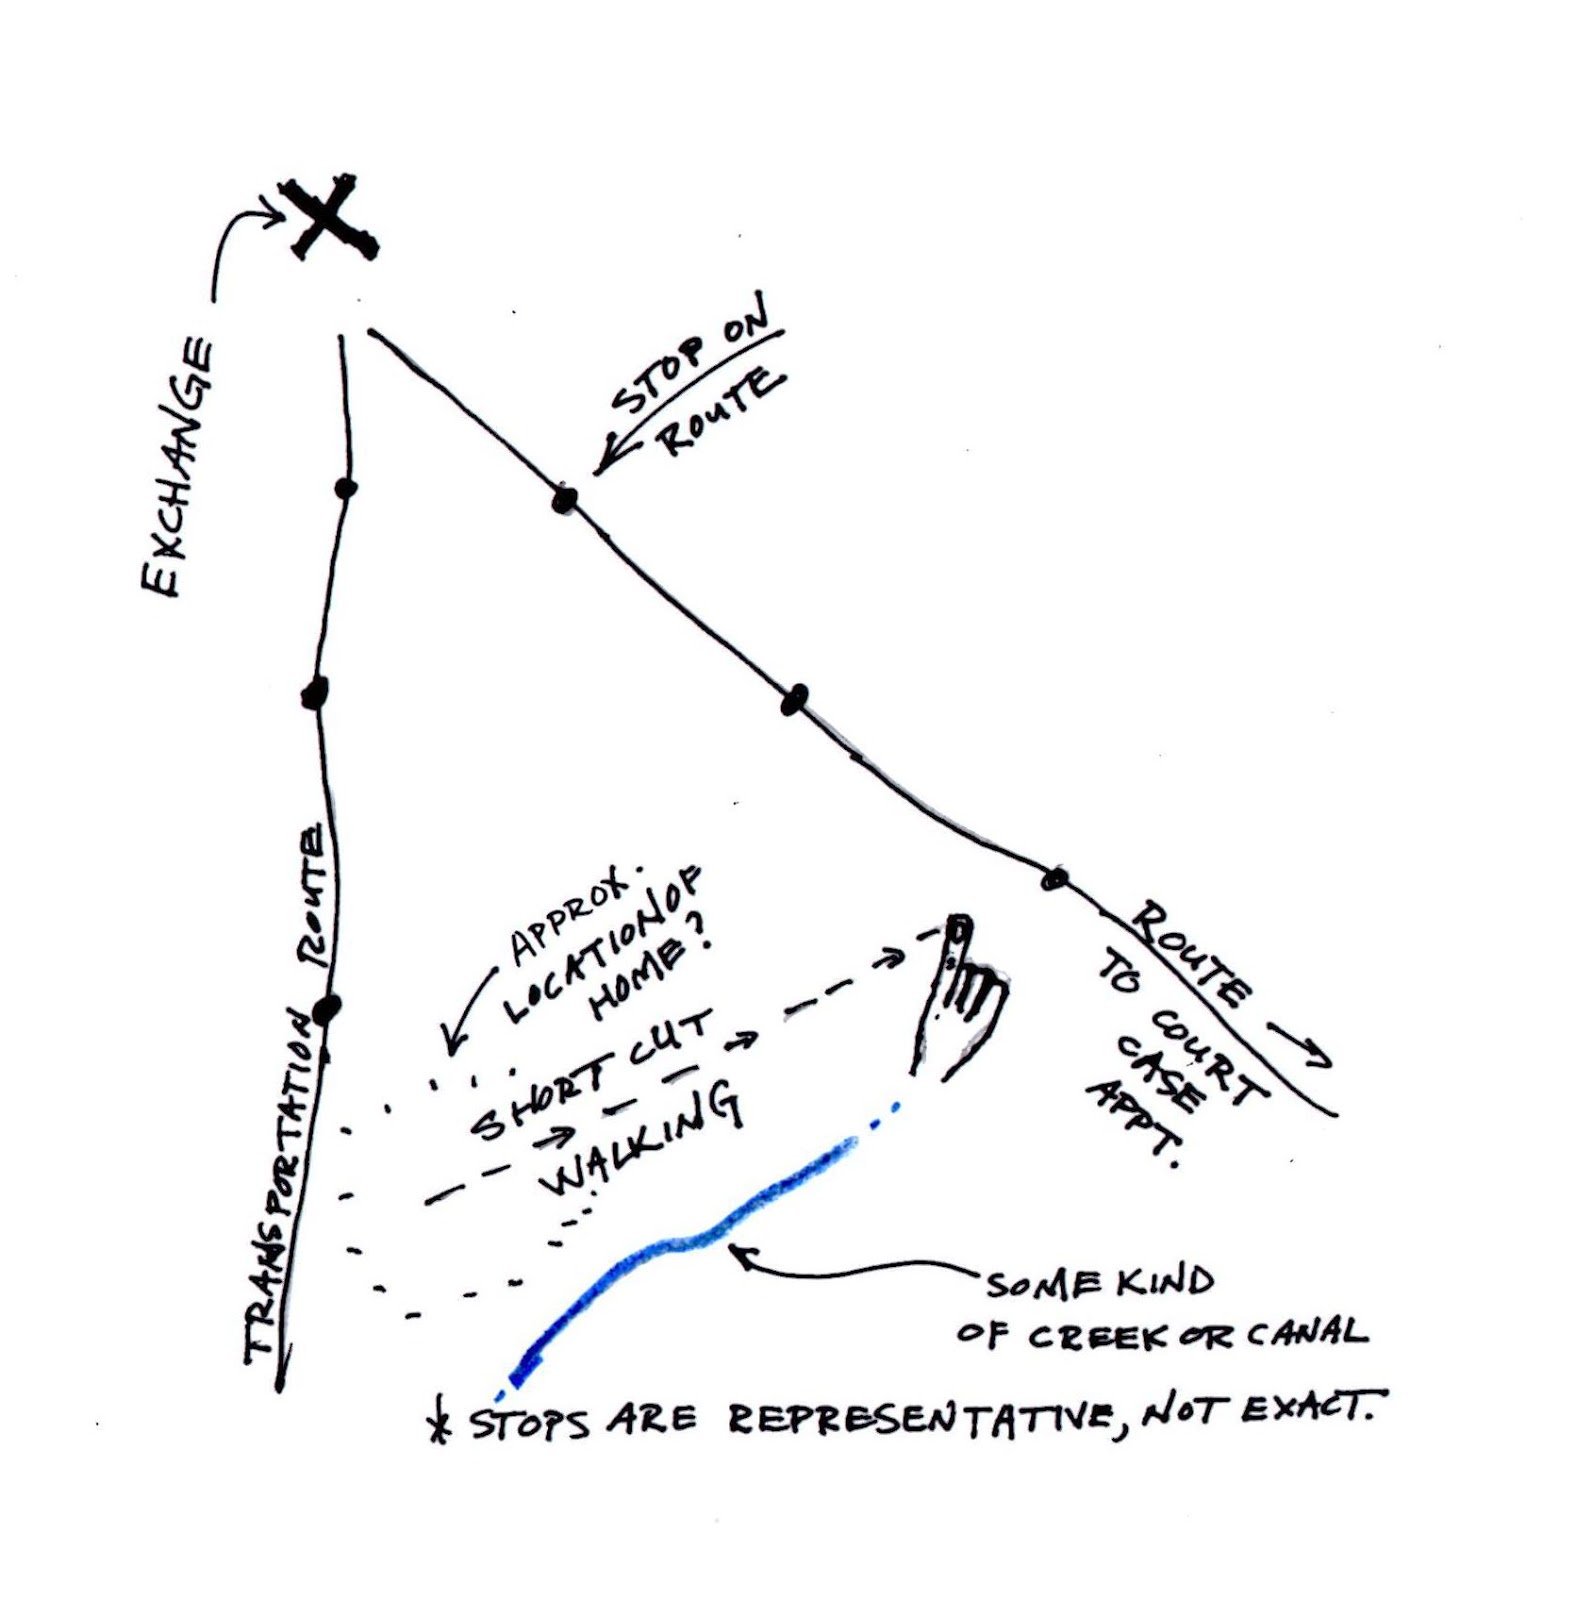 EXCHANGE
STOP ON
ROUTE
TRANSPORTATION ROUTE
APPROX.
LOCATION OF
HOME?
SHORT CUT
WALKING
ROUTE
TO COURT
CASE
APPT.
SOME KIND
OF CREEK OR CANAL
* STOPS ARE REPRESENTATIVE, NOT EXACT.